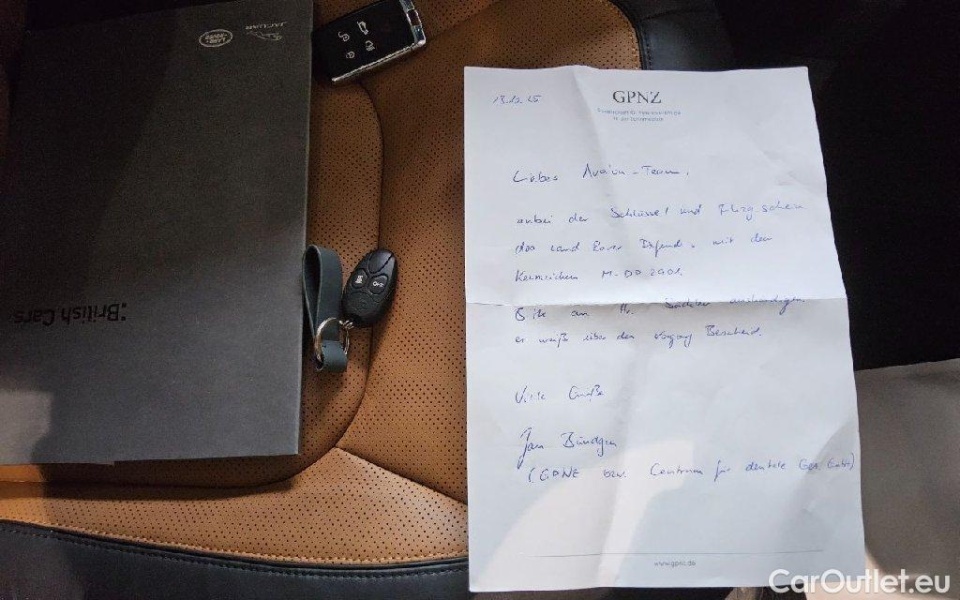 JAGUAR
LAND ROVER
:British Cars
13.12.25
GPNZ
Liebes Avalon-Team,
anbei der Schlüssel und Fhrzg.schein
des Land Rover Defender mit dem
Kennzeichen M-DD
Bitte an Hr. aushändigen
er weiß über den Vorgang Bescheid.
Viele Grüße
Jan Bündgen
(GPNZ bzw. Centrum für dentale
www.gpnz.de
CarOutlet.eu